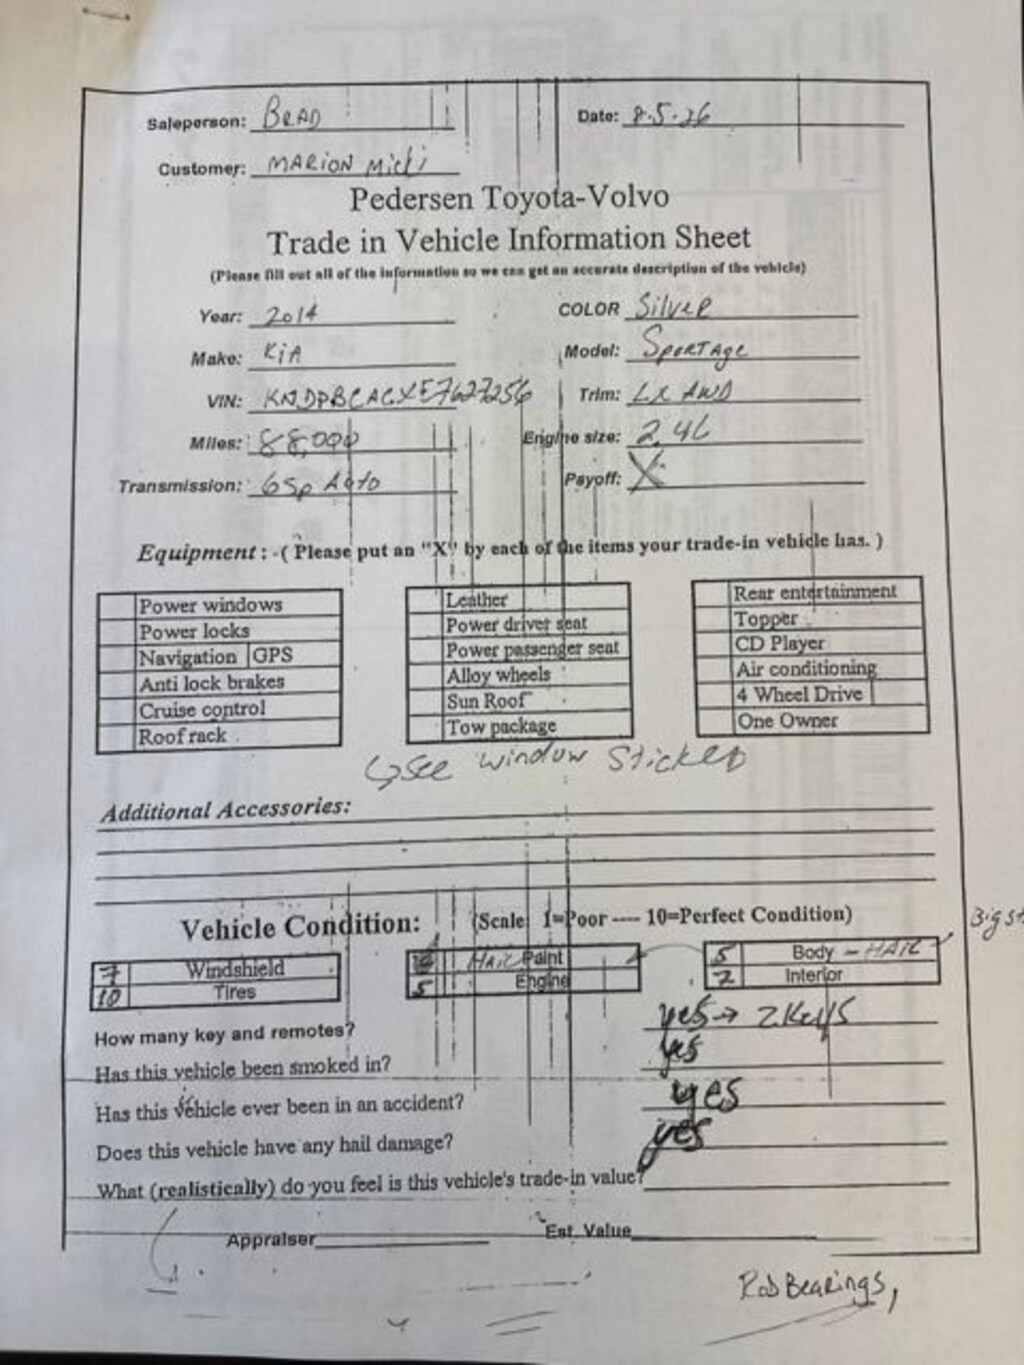 Saleperson: BRAD Date: 8-5-26
Customer: MARION Micki
Pedersen Toyota-Volvo
Trade in Vehicle Information Sheet
(Please fill out all of the information so we can get an accurate description of the vehicle)
Year: 2014 COLOR Silver
Make: KiA Model: Sportage
VIN: KNDPBCACXE7627256 Trim: LX AWD
Miles: 88,000 Engine size: 2.4L
Transmission: 6sp Auto Payoff: X
Equipment: - ( Please put an "X" by each of the items your trade-in vehicle has. )
Power windows Leather Rear entertainment
Power locks Power driver seat Topper
Navigation GPS Power passenger seat CD Player
Anti lock brakes Alloy wheels Air conditioning
Cruise control Sun Roof 4 Wheel Drive
Roof rack Tow package One Owner
See window Sticker
Additional Accessories:
Vehicle Condition: (Scale 1=Poor ---- 10=Perfect Condition) Big
7 Windshield HAIL Paint 5 Body - HAIL
10 Tires 5 Engine 7 Interior
How many key and remotes? yes → 2 Keys
Has this vehicle been smoked in? yes
Has this vehicle ever been in an accident? yes
Does this vehicle have any hail damage? yes
What (realistically) do you feel is this vehicle's trade-in value?
Appraiser Est. Value
Rod Bearings,